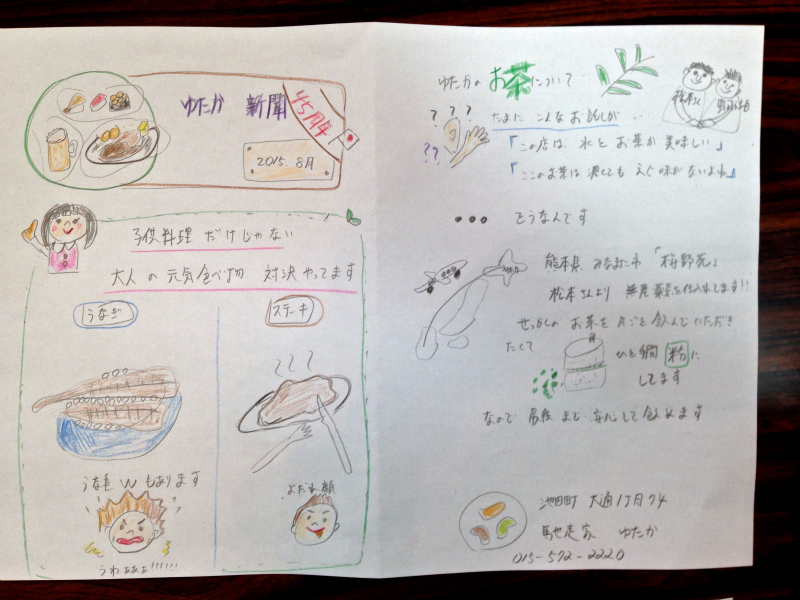 ゆたか 新聞
45月号
2015.8月
子供料理だけじゃない
大人の元気食べ物 対決やってます
うなぎ
ステーキ
うな重Wもあります
よだれ顔
うわぁぁぁ!!!!!!
ゆたかのお茶について
松本さん
? ? ?
??
たまにこんなお話しが...
「この店は 水とお茶が美味しい」
「このお茶は濃くてもえぐ味がないよね」
・・・ そうなんです
熊本県 みなまた市 「桜野苑」
松本さんより 無農薬を仕入れてます!!
せっかくの お茶を丸ごと飲んでいただき
たくて
ひと缶 粉に
してます
なので 最後まで 安心して飲めます
池田町 大通1丁目74
馳走家 ゆたか
015-572-2220